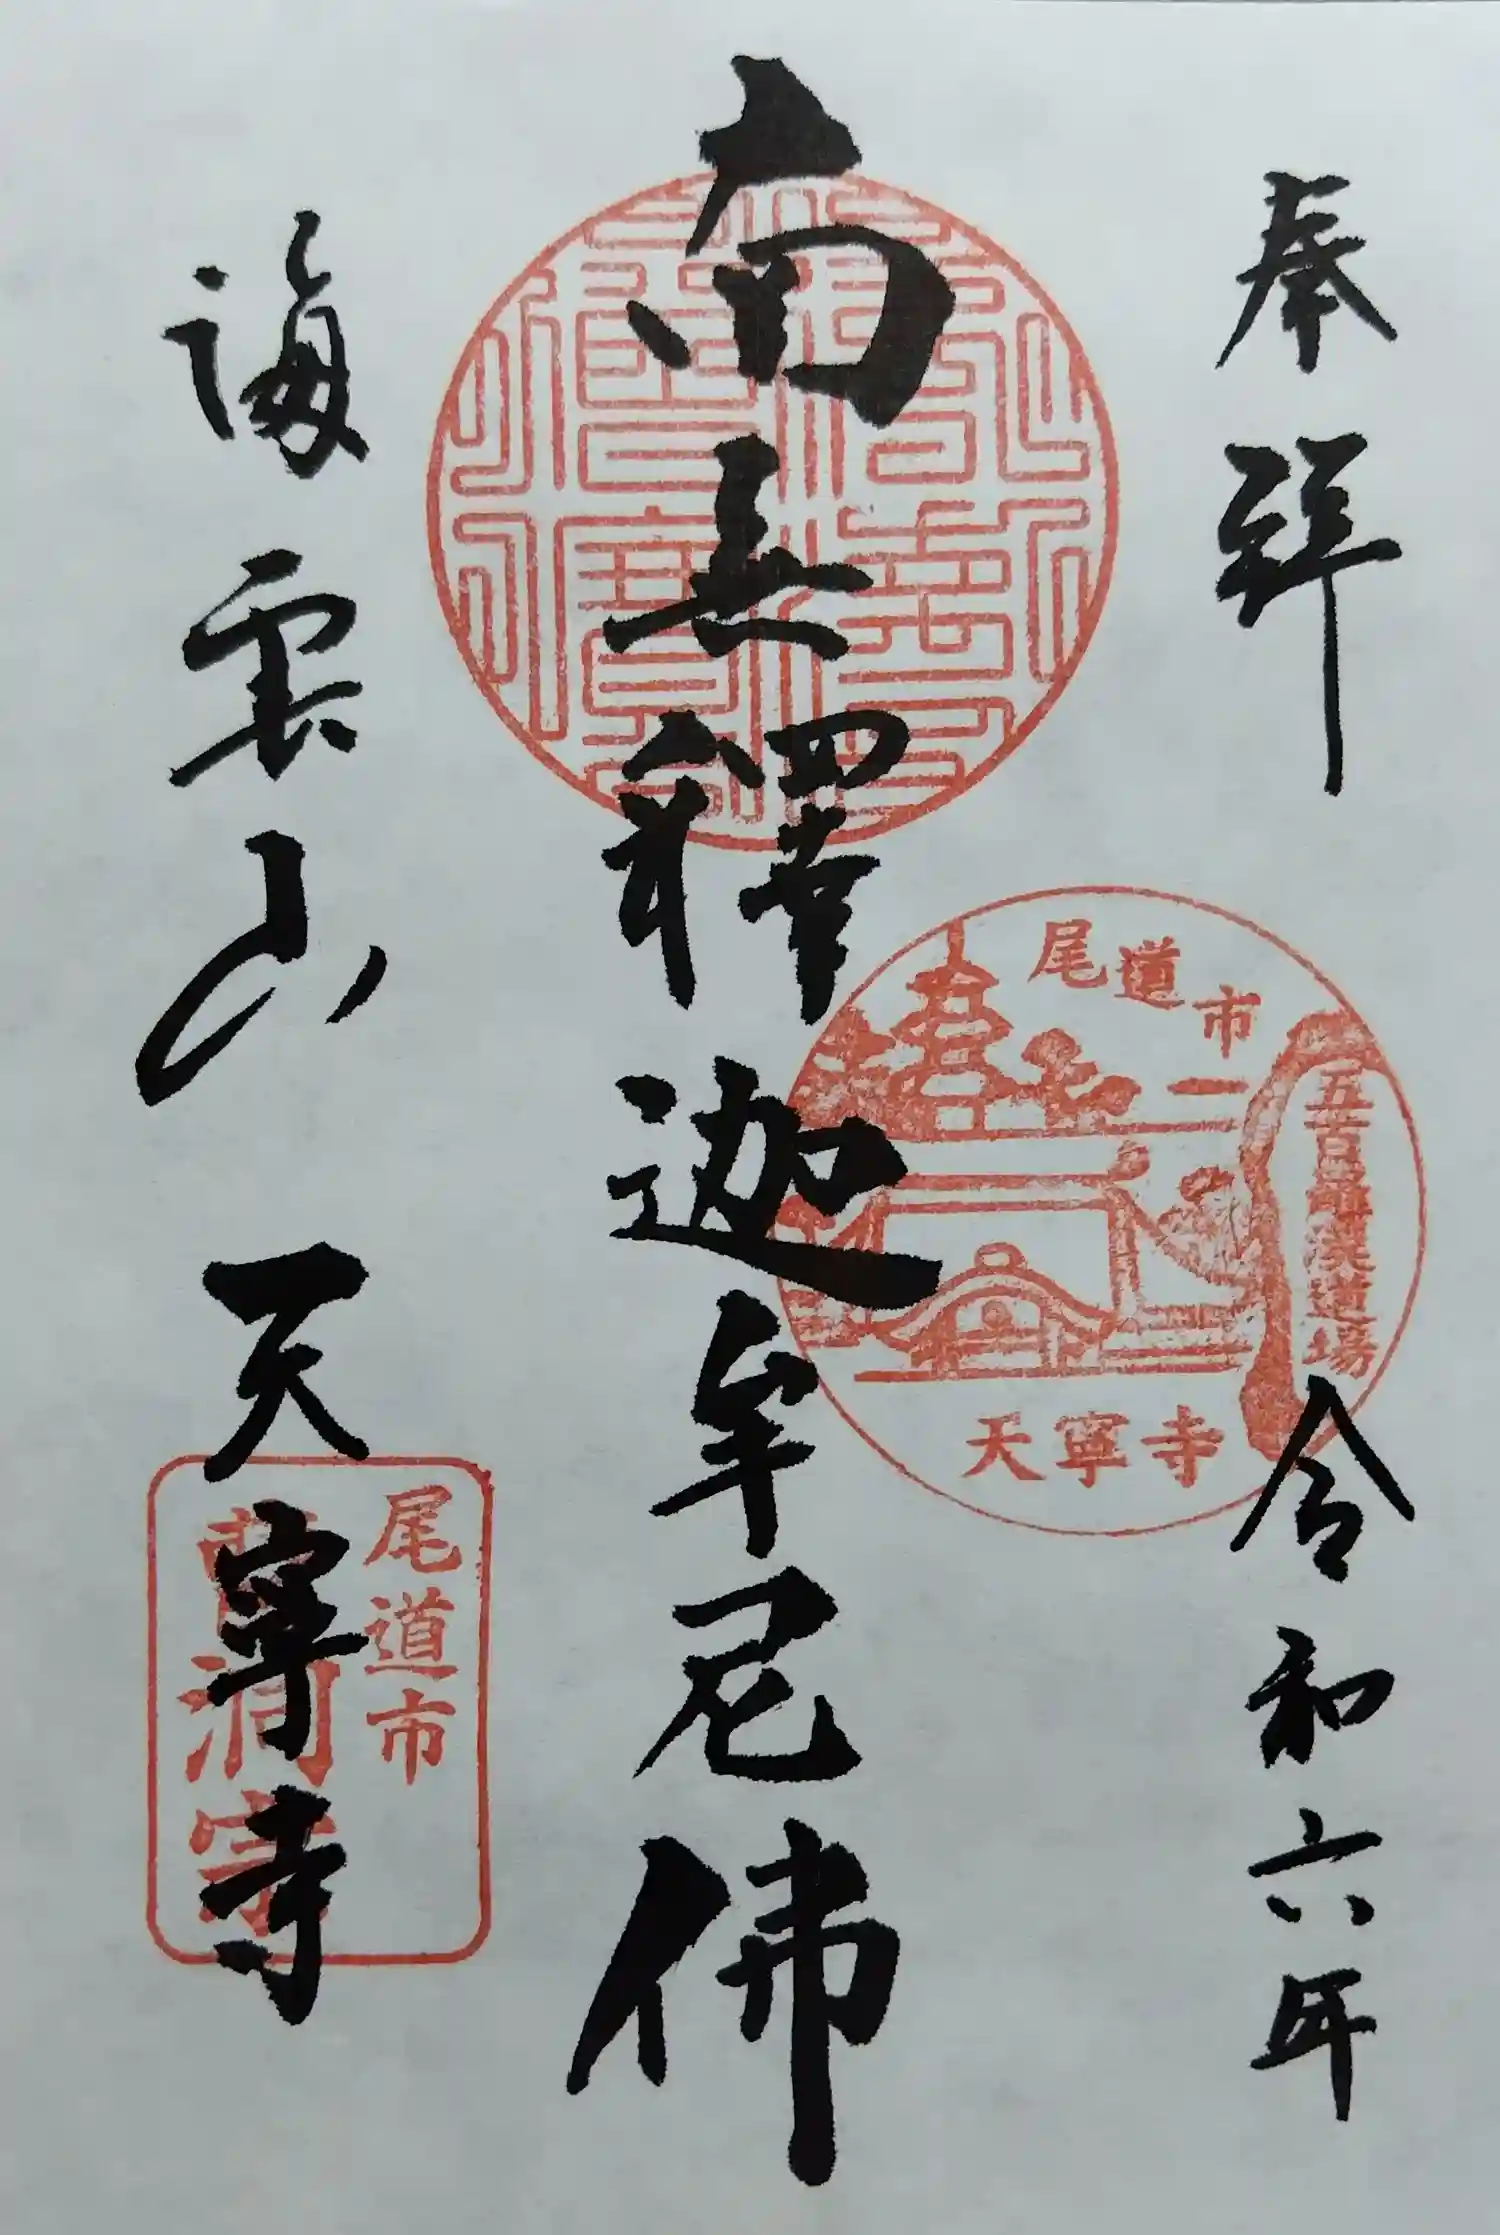 奉拜
令和六年
尾道市
五百羅漢道場
天寧寺
南無釋迦牟尼佛
海雲山 天寧寺
尾道市
曹洞宗